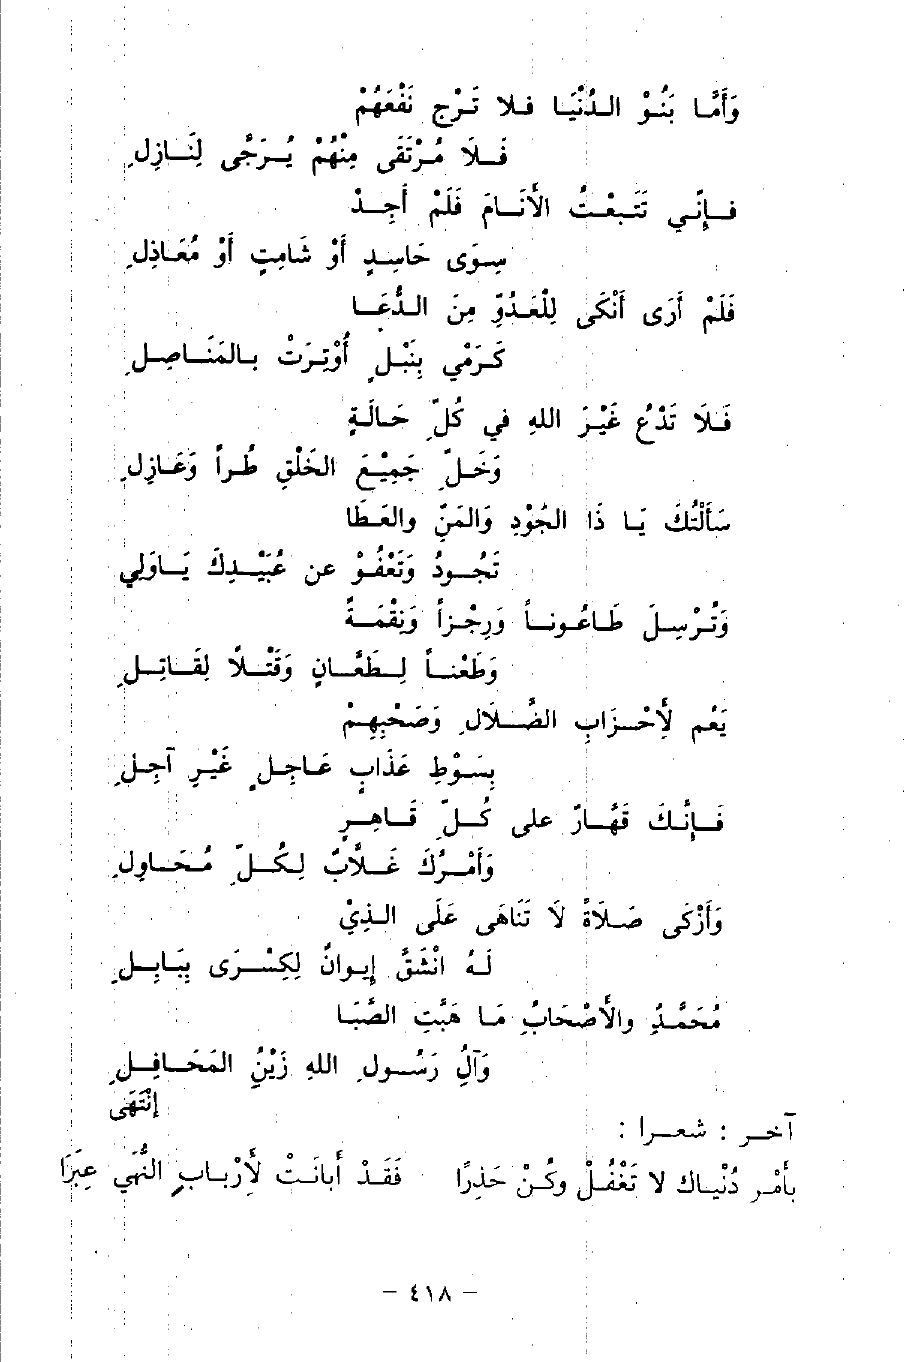 وَأَمَّا بَنُوْ الدُّنْيَا فلا تَرْج نَفْعَهُمْ
فَلَا مُرْتَقَى مِنْهُمْ يُرَجَّى لِنَازِلِ
فإِنِّي تَتَبعْتُ الأَنَامَ فَلَمْ أَجِدْ
سِوَى حَاسِدٍ أَوْ شَامِتٍ أَوْ مُعَاذِلِ
فَلَمْ أَرَى أَنْكَى لِلْعَدُوِّ مِنَ الدُّعَا
كَرَمْي بِنَبْلٍ أُوْتِرَتْ بِالمَنَاصِلِ
فَلَا تَدْعُ غَيْرَ اللهِ في كُلِّ حَالَةٍ
وَخَلِّ جَمِيْعَ الخَلْقِ طُراً وَعَازِلِ
سَأَلْتُكَ يَا ذَا الجُوْدِ وَالمَنِّ والعَطَا
تَجُودُ وَتَعْفُوْ عن عُبَيْدِكَ يَاوَلِي
وَتُرْسِلَ طَاعُوناً وَرِجْزاً وَنِقْمَةً
وَطَعْناً لِطَعَّانٍ وَقَتْلاً لِقَاتِلِ
يَعُم لِأَحْزَابِ الضَّلَالِ وَصَحْبِهِمْ
بِسَوْطِ عَذَابٍ عَاجِلٍ غَيْرِ آجِلِ
فَإِنَّكَ قَهَّارٌ على كُلِّ قَاهِرٍ
وَأَمْرُكَ غَلاَّبٌ لِكُلِّ مُحَاوِلِ
وَأَزْكَى صَلَاةً لَا تَنَاهَى عَلَى الذِيْ
لَهُ انْشَقَّ إِيوانٌ لِكِسْرَى بِبَابِلِ
مُحَمَّدٍ والأَصْحَابِ مَا هَبَّتِ الصَّبَا
وَآلِ رَسُولِ اللهِ زَيْنِ المَحَافِلِ
إنْتَهَى
آخر : شعرا :
بأَمْرِ دُنْيَاك لا تَغْفُلْ وكُنْ حَذِرًا فَقَدْ أَبانَتْ لِأَرْبابِ النُّهَى عِبَرَا
– ٤١٨ –